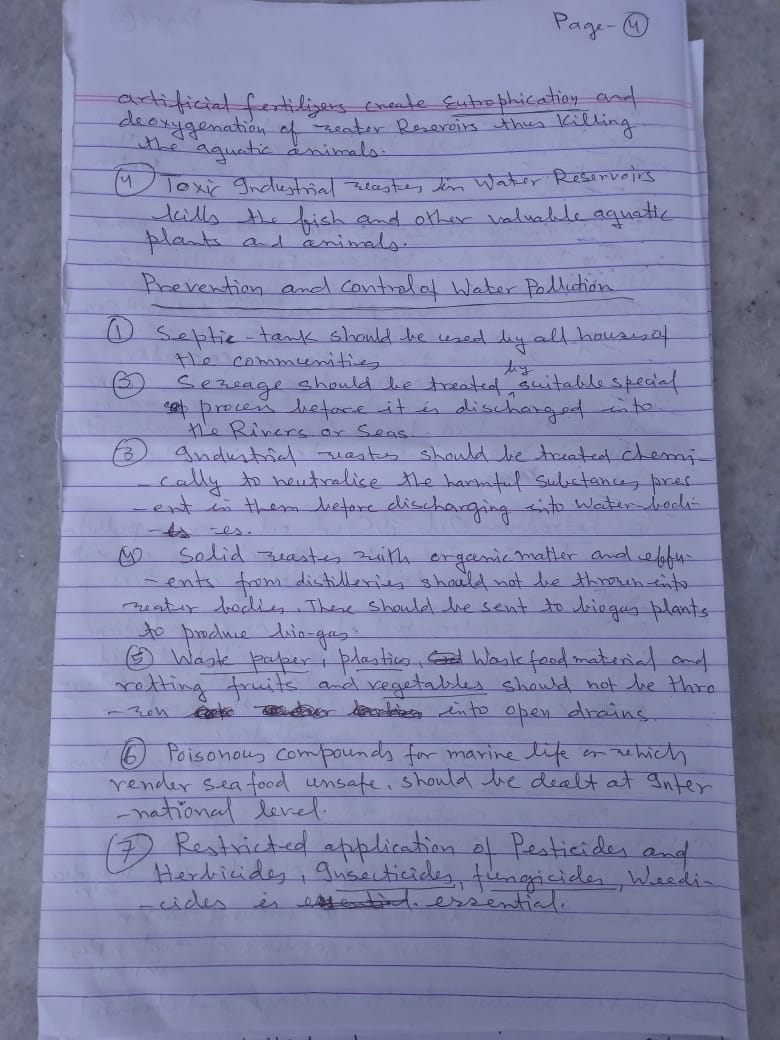 Page-4
artificial fertilizers create Eutrophication and
deoxygenation of water Reservoirs thus killing
the aquatic animals.
4 Toxic Industrial wastes in Water Reservoirs
kills the fish and other valuable aquatic
plants and animals.
Prevention and control of Water Pollution
1 Septic-tank should be used by all houses of
the communities
by
2 Sewage should be treated suitable special
process before it is discharged into
the Rivers or Seas.
3 Industrial wastes should be treated chemi-
-cally to neutralise the harmful substances pres
-ent in them before discharging into Water-bodi-
-es.
4 Solid wastes with organic matter and efflu-
-ents from distilleries should not be thrown into
water bodies. These should be sent to biogas plants
to produce bio-gas.
5 Waste paper, plastics, Waste food material and
rotting fruits and vegetables should not be thro
-wn into open drains.
6 Poisonous compounds for marine life or which
render sea food unsafe, should be dealt at Inter
-national level.
7 Restricted application of Pesticides and
Herbicides, Insecticides, fungicides, Weedi-
-cides is essential.